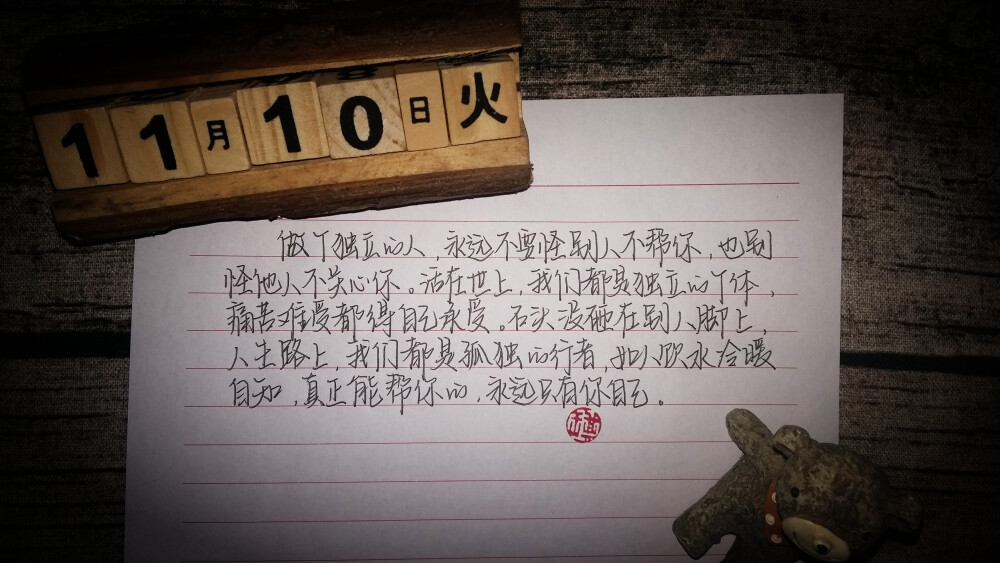 11月10日火
做个独立的人，永远不要怪别人不帮你，也别
怪他人不关心你。活在世上，我们都是独立的个体，
痛苦难受都得自己承受。石头没砸在别人脚上，
人生路上，我们都是孤独的行者，如人饮水冷暖
自知，真正能帮你的，永远只有你自己。